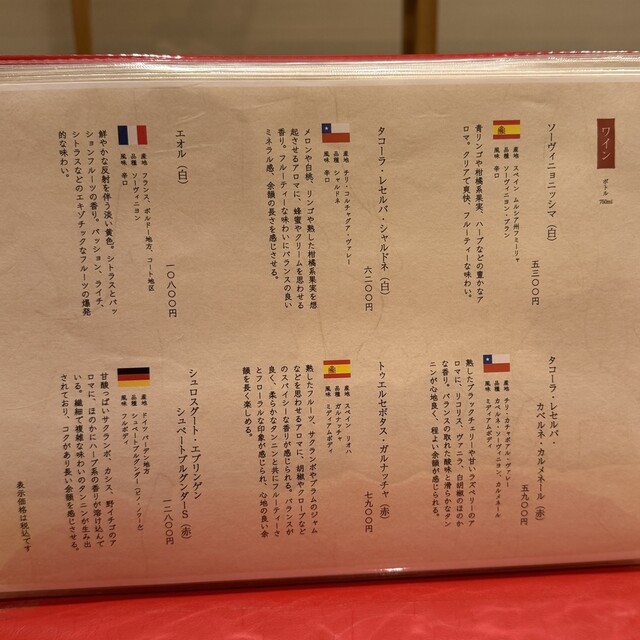 ワイン
ボトル
750ml
ソーヴィニョニッシマ（白）
五三〇〇円
産地 スペイン ムルシア州フミーリャ
品種 ソーヴィニヨン・ブラン
風味 辛口
青リンゴや柑橘系果実、ハーブなどの豊かなア
ロマ。クリアで爽快、フルーティーな味わい。
タコーラ・レセルバ・シャルドネ（白）
六二〇〇円
産地 チリ・コルチャグア・ヴァレー
品種 シャルドネ
風味 辛口
メロンや白桃、リンゴや熟した柑橘系果実を想
起させるアロマに、蜂蜜やクリームを思わせる
香り。フルーティーな味わいにバランスの良い
ミネラル感、余韻の長さを感じさせる。
エオル（白）
一〇八〇〇円
産地 フランス、ボルドー地方、コート地区
品種 ソーヴィニヨン
風味 辛口
鮮やかな反射を伴う淡い黄色。シトラスとパッ
ションフルーツの香り。パッション、ライチ、
シトラスなどのエキゾチックなフルーツの爆発
的な味わい。
タコーラ・レセルバ・
カベルネ・カルメネール（赤）
五九〇〇円
産地 チリ・カチャポアル・ヴァレー
品種 カベルネ・ソーヴィニヨン、カルメネール
風味 ミディアムボディ
熟したブラックチェリーや甘いラズベリーのア
ロマに、リコリス、ヴァニラ、白胡椒のほのか
な香り。バランスの取れた酸味と滑らかなタン
ニンが心地良く、程よい余韻が感じられる。
トゥエルセボタス・ガルナッチャ（赤）
七九〇〇円
産地 スペイン リオハ
品種 ガルナッチャ
風味 ミディアムボディ
熟したフルーツ、サクランボやプラムのジャム
などを思わせるアロマに、胡椒やクローブなど
のスパイシーな香りが感じられる。バランスが
良く、柔らかなタンニンと共にフルーティーさ
とフローラルな印象が感じられ、心地の良い余
韻を長く楽しめる。
シュロスグート・エブリンゲン
シュペートブルグンダーS（赤）
一二八〇〇円
産地 ドイツ バーデン地方
品種 シュペートブルグンダー（ピノ・ノワール）
風味 フルボディ
甘酸っぱいサクランボ、カシス、野イチゴのア
ロマに、ほのかにハーブ系の香りが溶け込んで
いる。繊細で複雑な味わいのタンニンが生み出
されており、コクがあり長い余韻を感じさせる。
表示価格は税込です